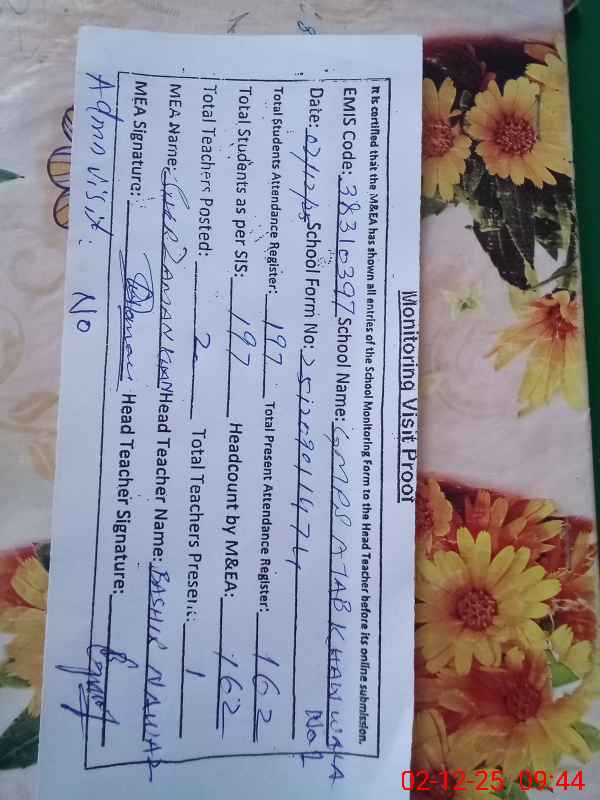 Monitoring Visit Proof
It is certified that the M&EA has shown all entries of the School Monitoring Form to the Head Teacher before its online submission.
EMIS Code: 38310397 School Name: GMPS AJAB KHAN WALA No 1
Date: 02/12/25 School Form No:
Total Students Attendance Register: 197 Total Present Attendance Register: 162
Total Students as per SIS: 197 Headcount by M&EA: 162
Total Teachers Posted: 2 Total Teachers Present: 1
MEA Name: SHER ZAMAN KHAN Head Teacher Name: BASHIR NAWAZ
MEA Signature: Head Teacher Signature:
Admn visit: No
02-12-25 09:44